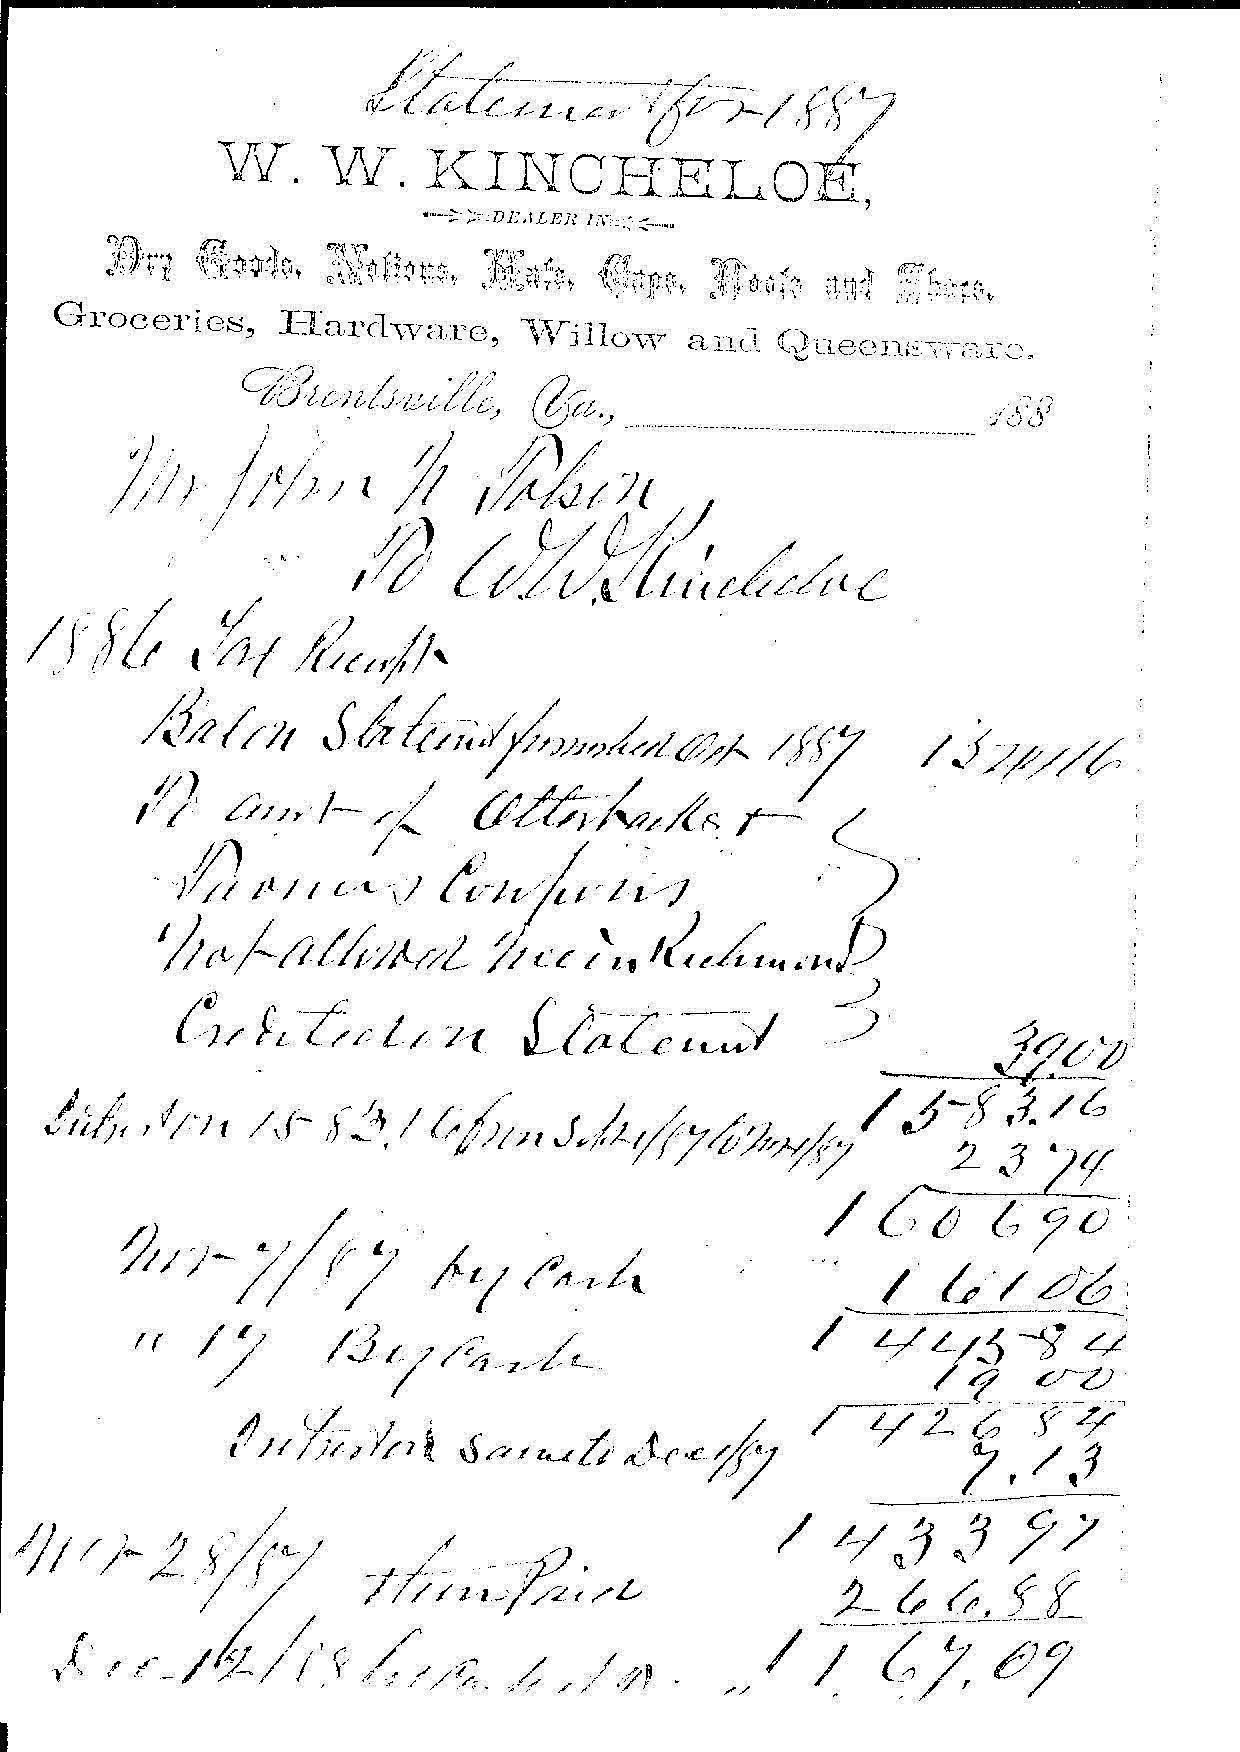 Statement for 1887
W. W. KINCHELOE,
DEALER IN
Dry Goods, Notions, Hats, Caps, Boots and Shoes,
Groceries, Hardware, Willow and Queensware.
Brentsville, Va., 188
Mr John N Tolson
To W.W. Kincheloe
1886 Tax Receipt
Balon Statemt furnished Oct 1887 1544.16
To amt of Otterback &
Coupons
Not allowed in Richmond
Credited on Statemt 39.00
1583.16
Intrest on 1583.16 from Sept 1/87 to Nov 1/87 23 74
1606 90
Nov 7/87 by Cash 161 06
1445 84
" 17 By Cash 19 00
1426 84
Intrest on same to Dec 1/87 7.13
1433 97
Nov 28/87 Paid 266.88
Dec 12/88 " 1167.09